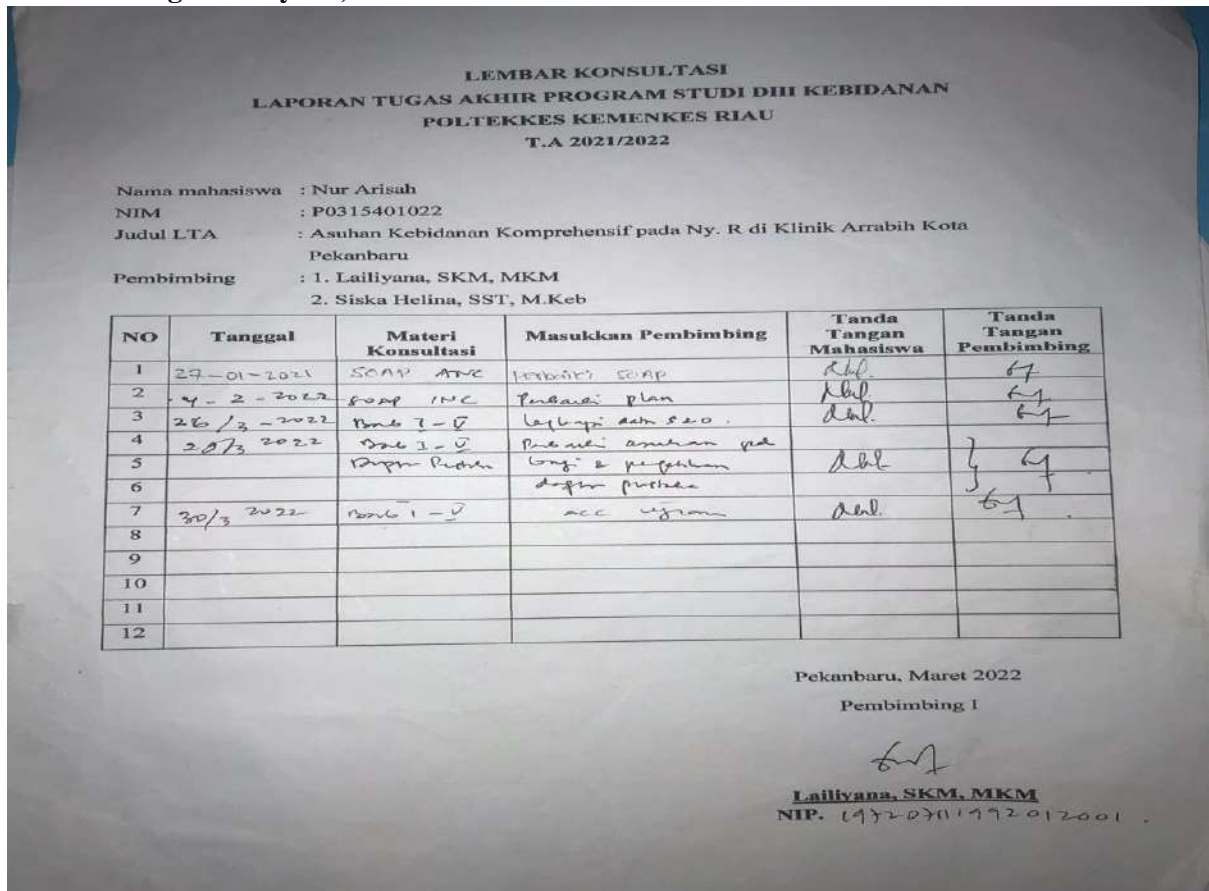 LEMBAR KONSULTASI
LAPORAN TUGAS AKHIR PROGRAM STUDI DIII KEBIDANAN
POLTEKKES KEMENKES RIAU
T.A 2021/2022
Nama mahasiswa : Nur Arisah
NIM : P0315401022
Judul LTA : Asuhan Kebidanan Komprehensif pada Ny. R di Klinik Arrabih Kota
Pekanbaru
Pembimbing : 1. Lailiyana, SKM, MKM
2. Siska Helina, SST, M.Keb
NO Tanggal Materi Konsultasi Masukkan Pembimbing Tanda Tangan Mahasiswa Tanda Tangan Pembimbing
1 27-01-2021 SOAP ANC SOAP
2 4-2-2022 SOAP INC plan
3 26/3-2022 Bab I-V S & O.
4 2022 Bab I-V asuhan
5
6 pustaka
7 30/3 2022 Bab I-V acc
8
9
10
11
12
Pekanbaru, Maret 2022
Pembimbing I
Lailiyana, SKM, MKM
NIP.